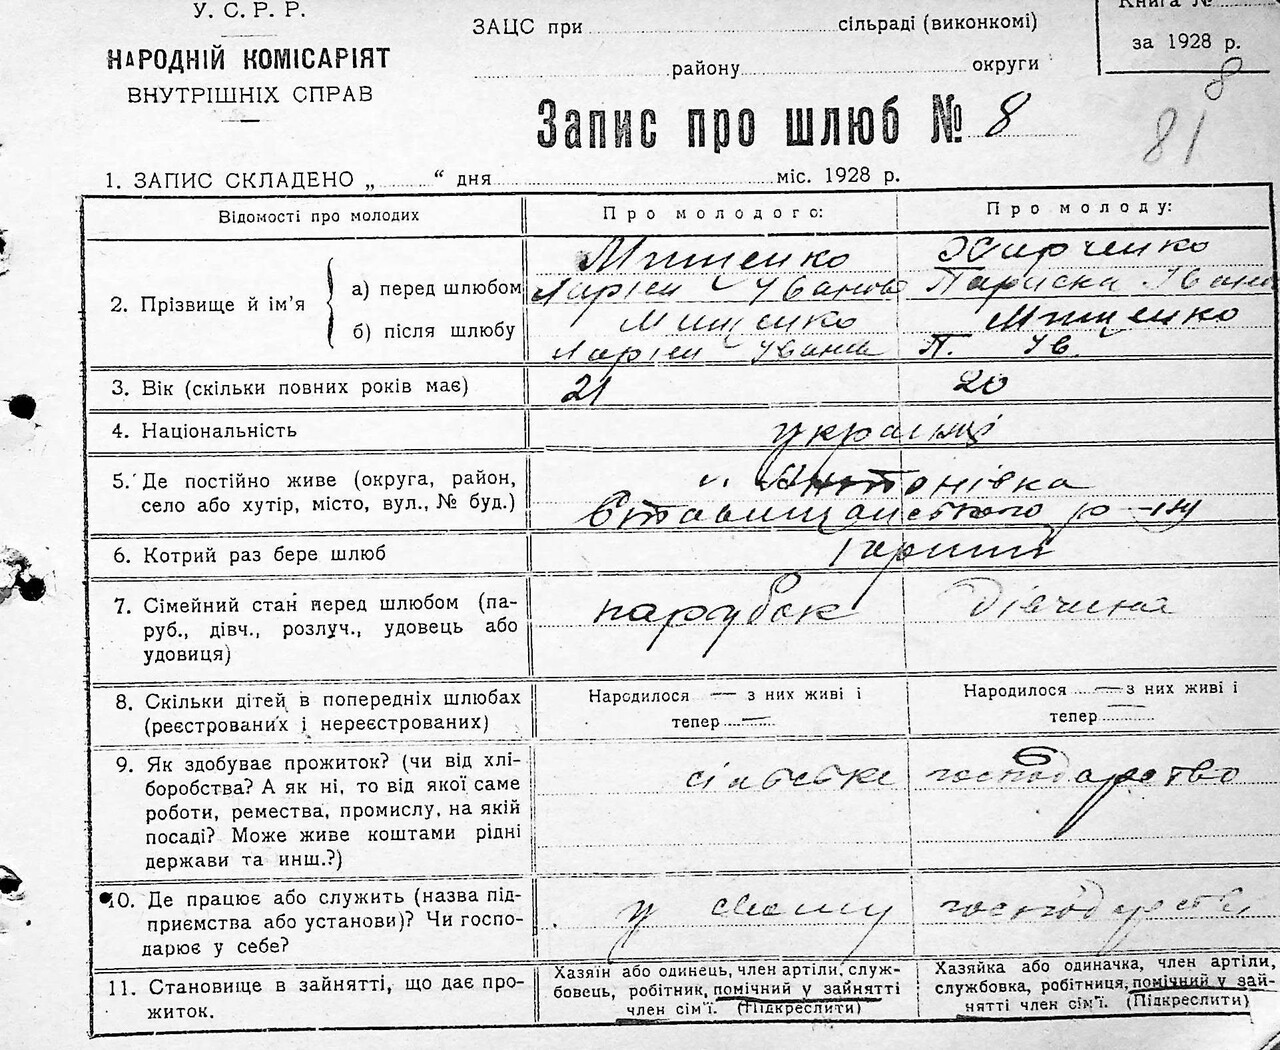 У. С. Р. Р.
НАРОДНІЙ КОМІСАРІЯТ
ВНУТРІШНІХ СПРАВ
ЗАЦС при сільраді (виконкомі)
району округи
Книга №
за 1928 р.
8
Запис про шлюб № 8
81
1. ЗАПИС СКЛАДЕНО „ “ дня міс. 1928 р.
Відомості про молодих
Про молодого:
Про молоду:
2. Прізвище й ім’я
а) перед шлюбом
Мищенко
Іванов
Харченко
Параска Іван
б) після шлюбу
Мищенко
Іванов
Мищенко
П. Ів.
3. Вік (скільки повних років має)
21
20
4. Національність
українці
5. Де постійно живе (округа, район,
село або хутір, місто, вул., № буд.)
с. Антонівка
Ставищанського р-ну
6. Котрий раз бере шлюб
перший
7. Сімейний стан перед шлюбом (па-
руб., дівч., розлуч., удовець або
удовиця)
парубок
дівчина
8. Скільки дітей в попередніх шлюбах
(реєстрованих і нереєстрованих)
Народилося — з них живі і
тепер —
Народилося — з них живі і
тепер —
9. Як здобуває прожиток? (чи від хлі-
боробства? А як ні, то від якої саме
роботи, ремества, промислу, на якій
посаді? Може живе коштами рідні
держави та инш.?)
сільське господарство
10. Де працює або служить (назва під-
приємства або установи)? Чи госпо-
дарює у себе?
у своєму господарстві
11. Становище в зайнятті, що дає про-
житок.
Хазяїн або одинець, член артіли, служ-
бовець, робітник, помічний у зайнятті
член сім’ї. (Підкреслити)
Хазяйка або одиначка, член артіли,
службовка, робітниця, помічний у зай-
нятті член сім’ї. (Підкреслити)